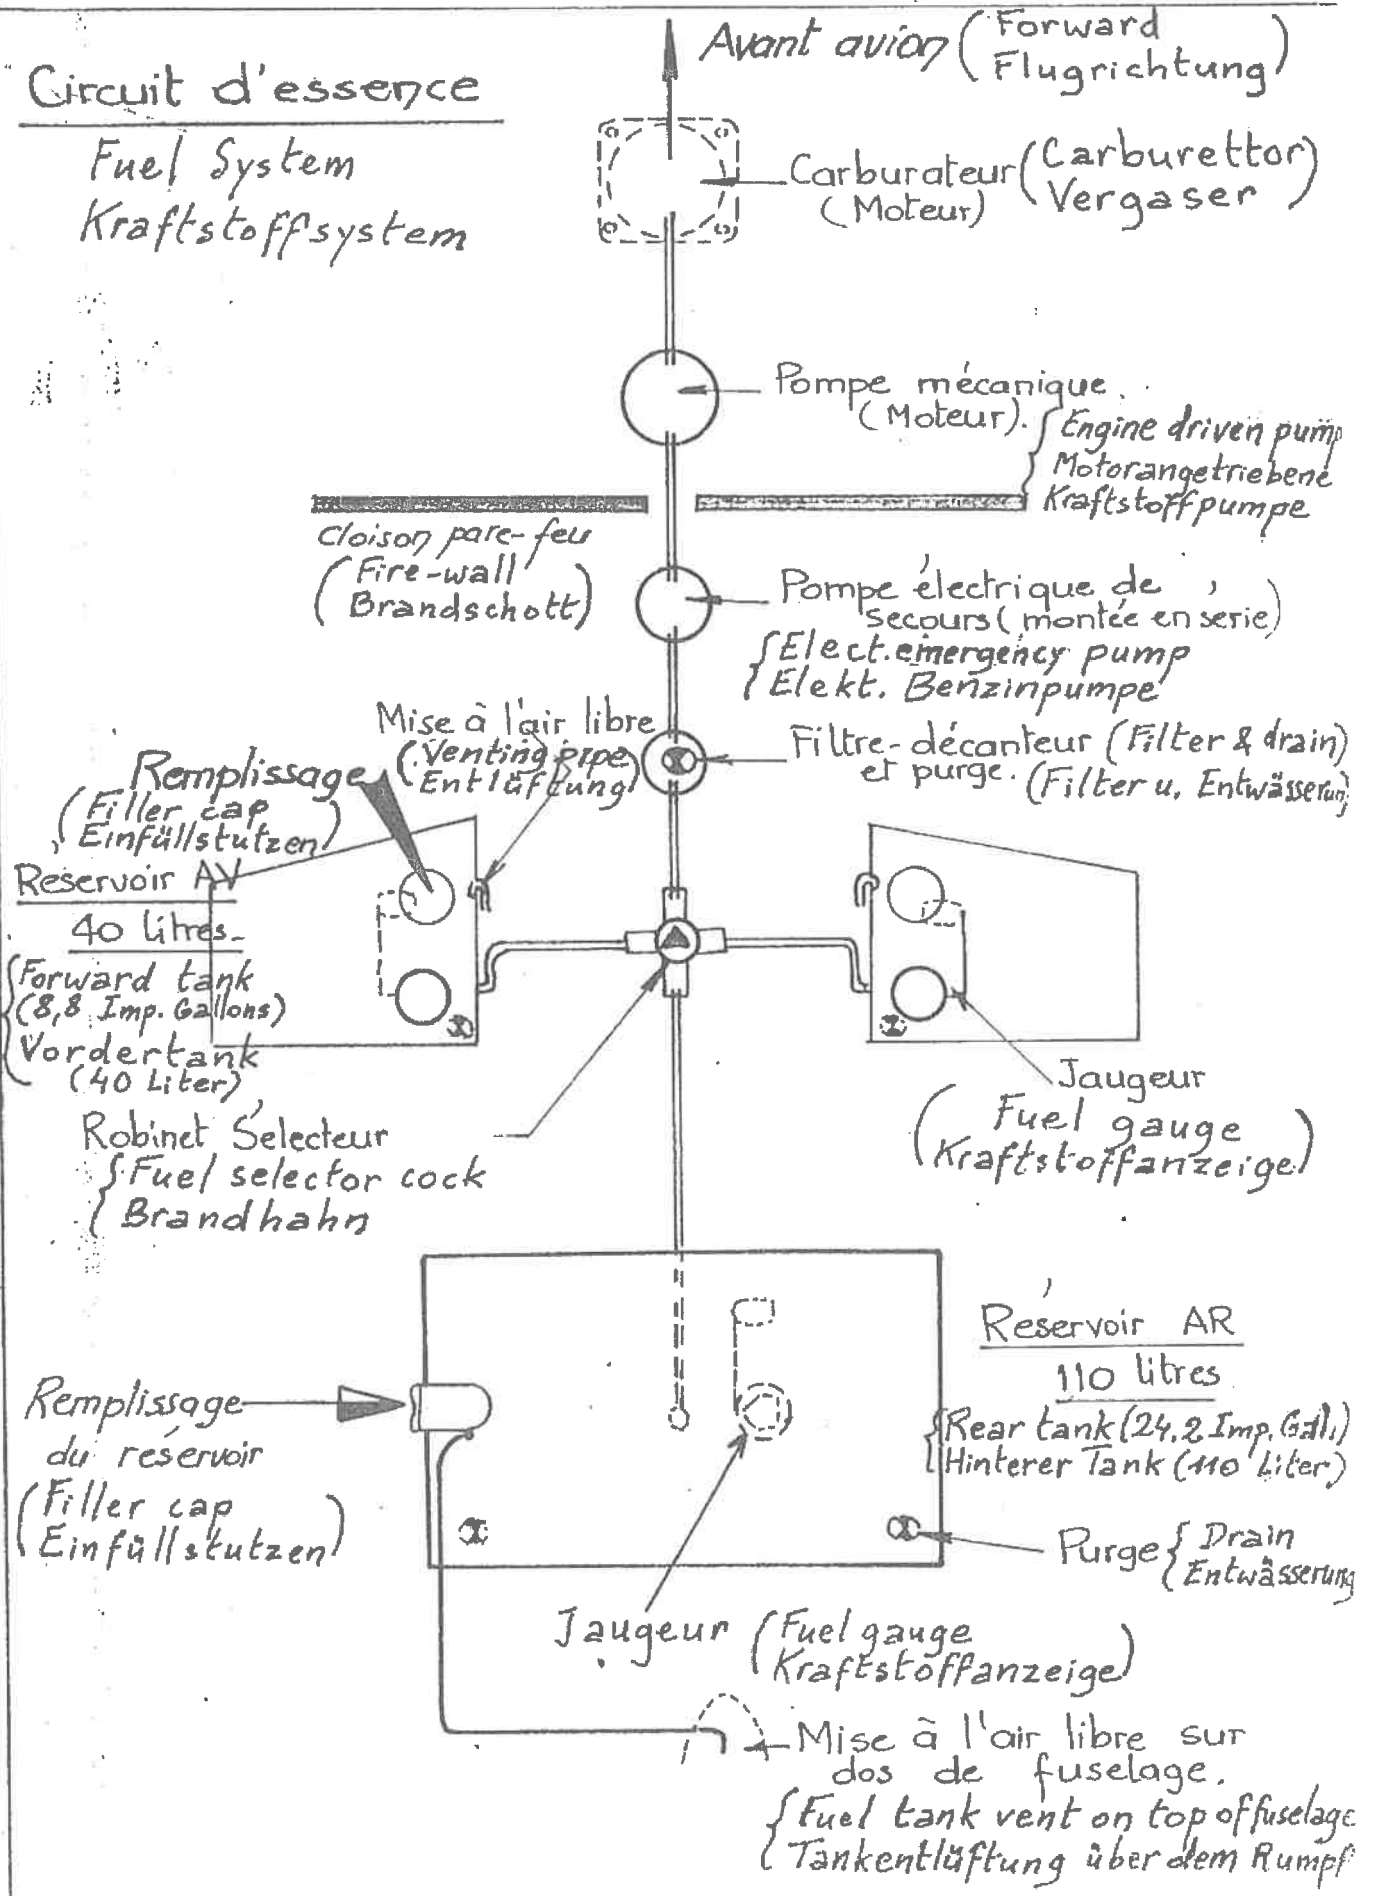 Circuit d'essence
Fuel System
Kraftstoffsystem
Avant avion (Forward
Flugrichtung)
Carburateur (Carburettor
(Moteur) Vergaser)
Pompe mécanique.
(Moteur).
Engine driven pump
Motorangetriebene
Kraftstoffpumpe
Cloison pare-feu
(Fire-wall
Brandschott)
Pompe électrique de
secours (montée en serie)
Elect. emergency pump
Elekt. Benzinpumpe
Mise à l'air libre
(Venting pipe
Entlüftung)
Filtre-décanteur (Filter & drain)
et purge. (Filter u. Entwässerung
Remplissage
(Filler cap
Einfüllstutzen)
Réservoir AV
40 litres.
Forward tank
(8,8 Imp. Gallons)
Vordertank
(40 Liter)
Robinet Sélecteur
Fuel selector cock
Brandhahn
Jaugeur
(Fuel gauge
Kraftstoffanzeige)
Réservoir AR
110 litres
Rear tank (24,2 Imp. Gall.)
Hinterer Tank (110 Liter)
Remplissage
du réservoir
(Filler cap
Einfüllstutzen)
Purge { Drain
Entwässerung
Jaugeur (Fuel gauge
Kraftstoffanzeige)
Mise à l'air libre sur
dos de fuselage.
Fuel tank vent on top of fuselage
Tankentlüftung über dem Rumpf